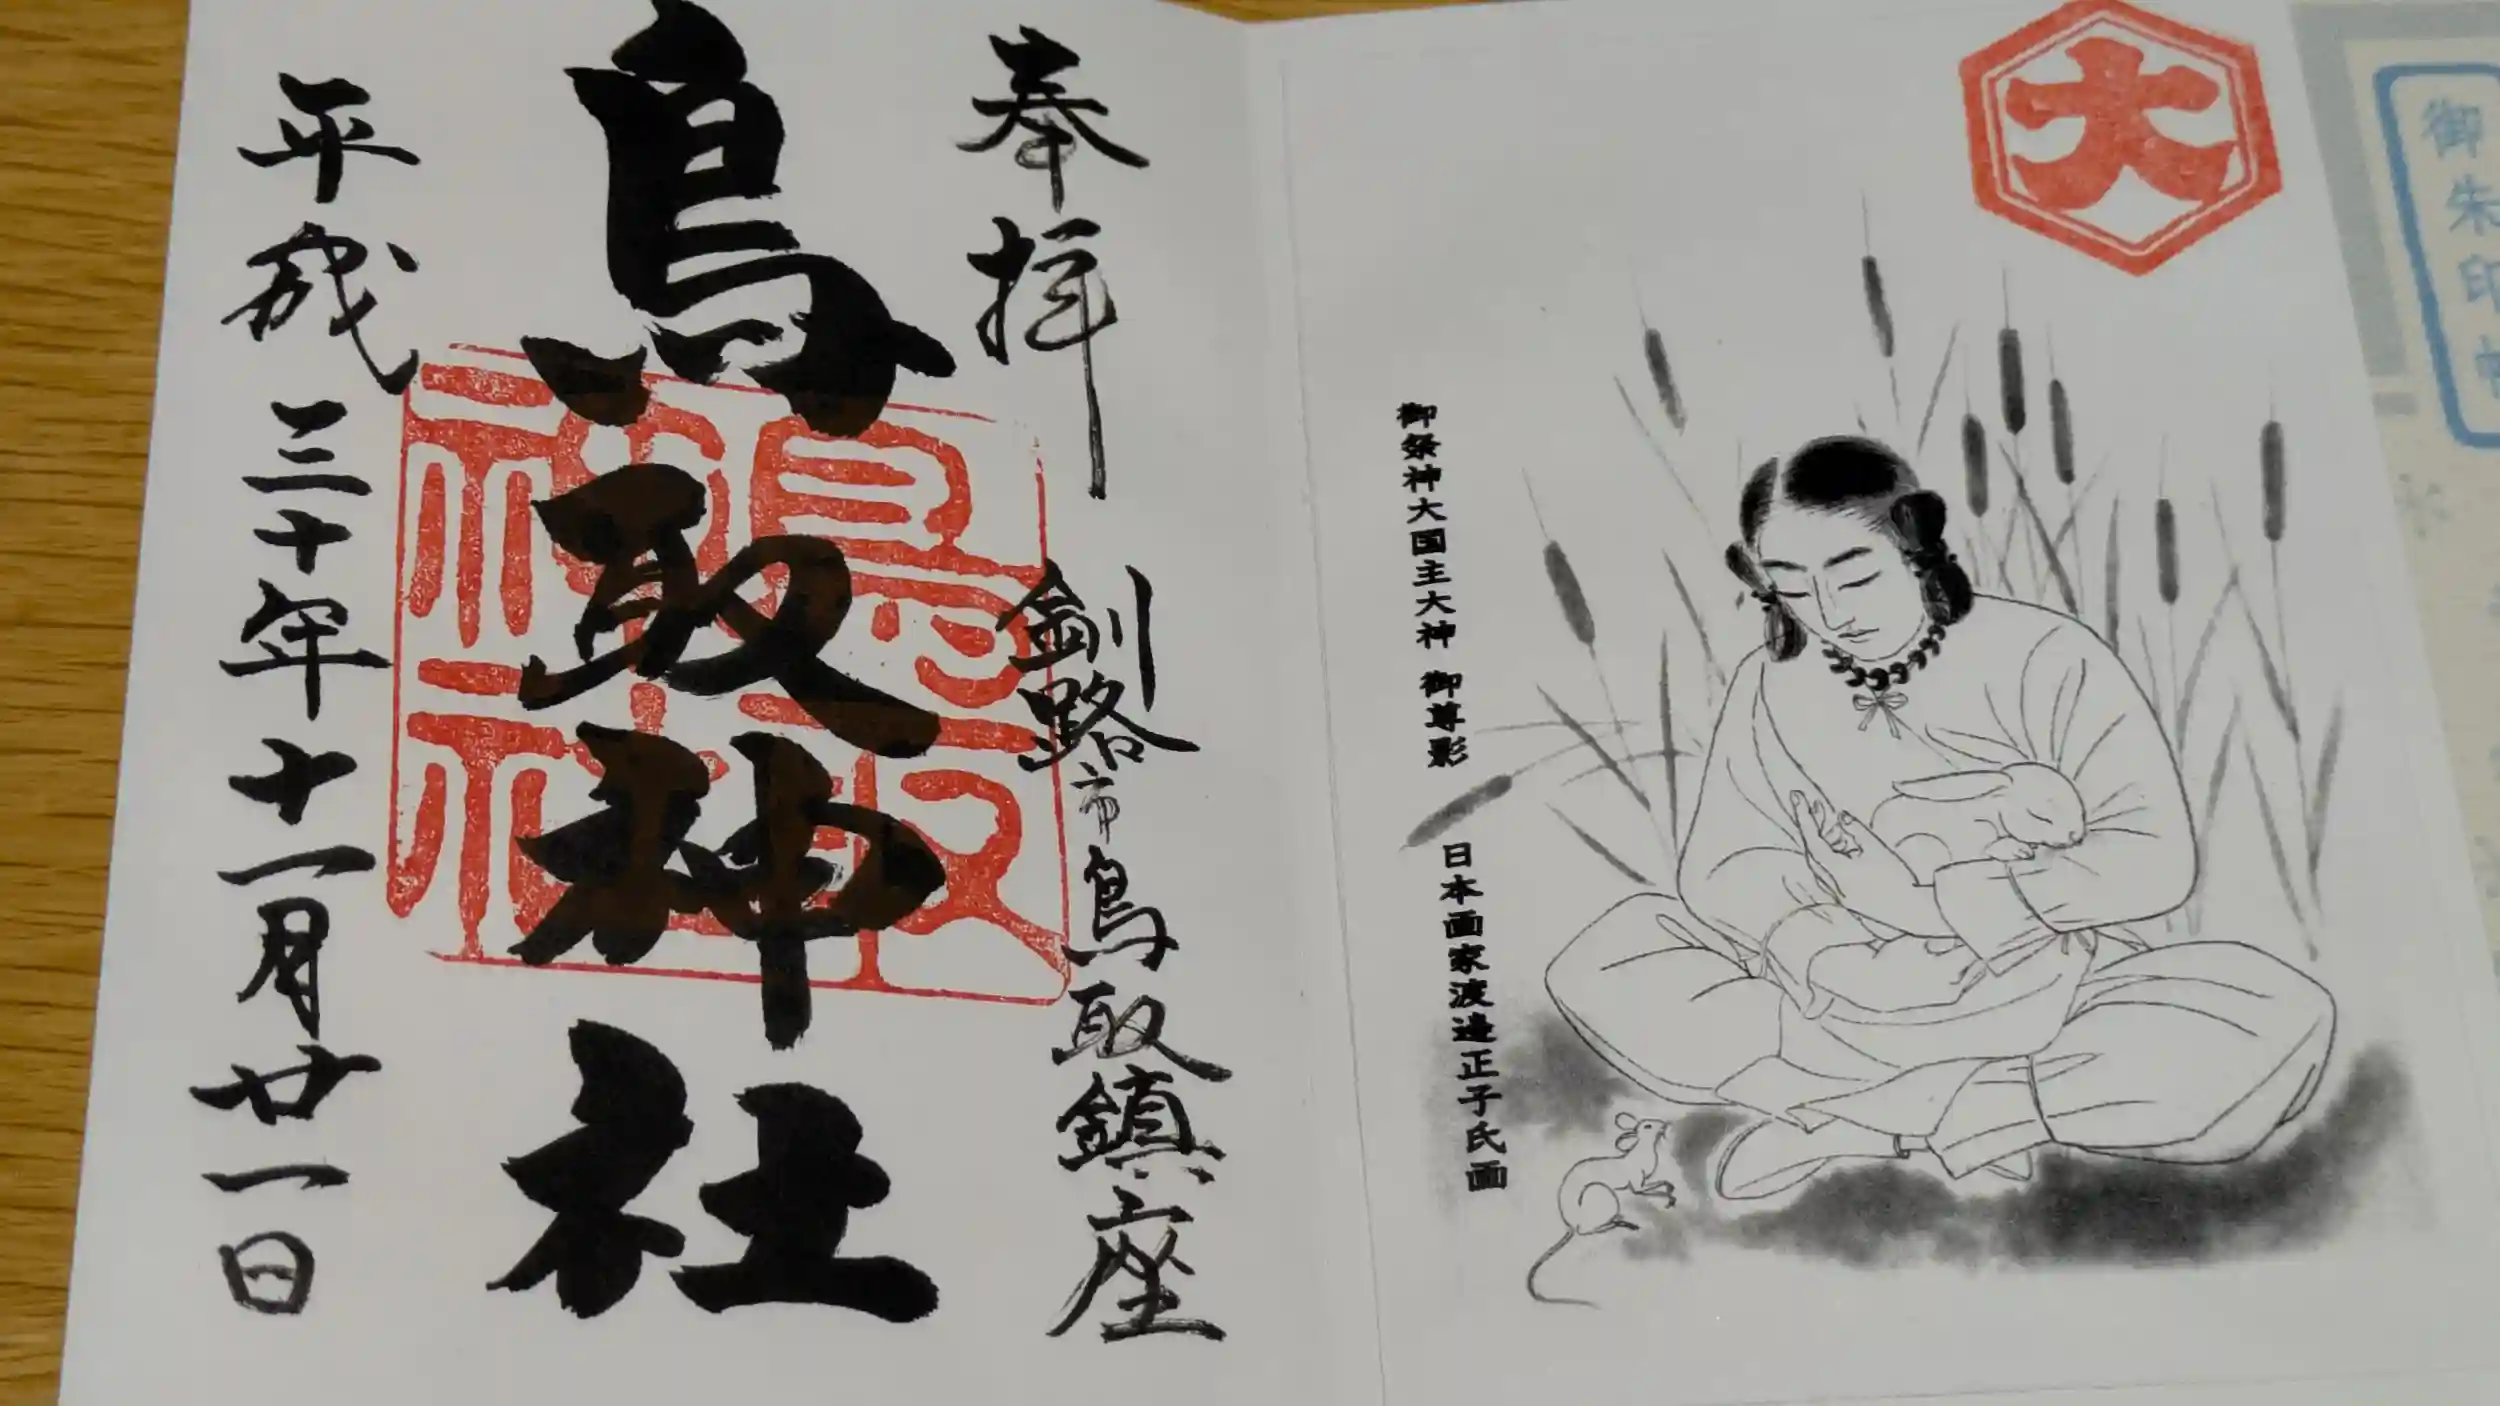 大
御朱印
御祭神大国主大神 御尊影
日本画家渡邉正子氏画
奉拝
釧路市鳥取鎮座
鳥取神社
鳥取神社
平成三十年十一月廿一日